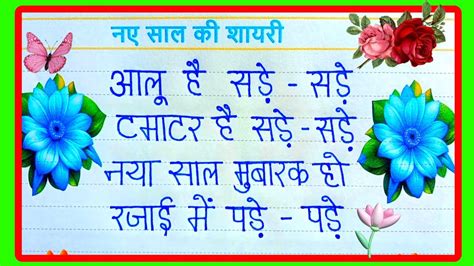 नए साल की शायरी
आलू है सड़े - सड़े
टमाटर है सड़े - सड़े
नया साल मुबारक हो
रजाई में पड़े - पड़े